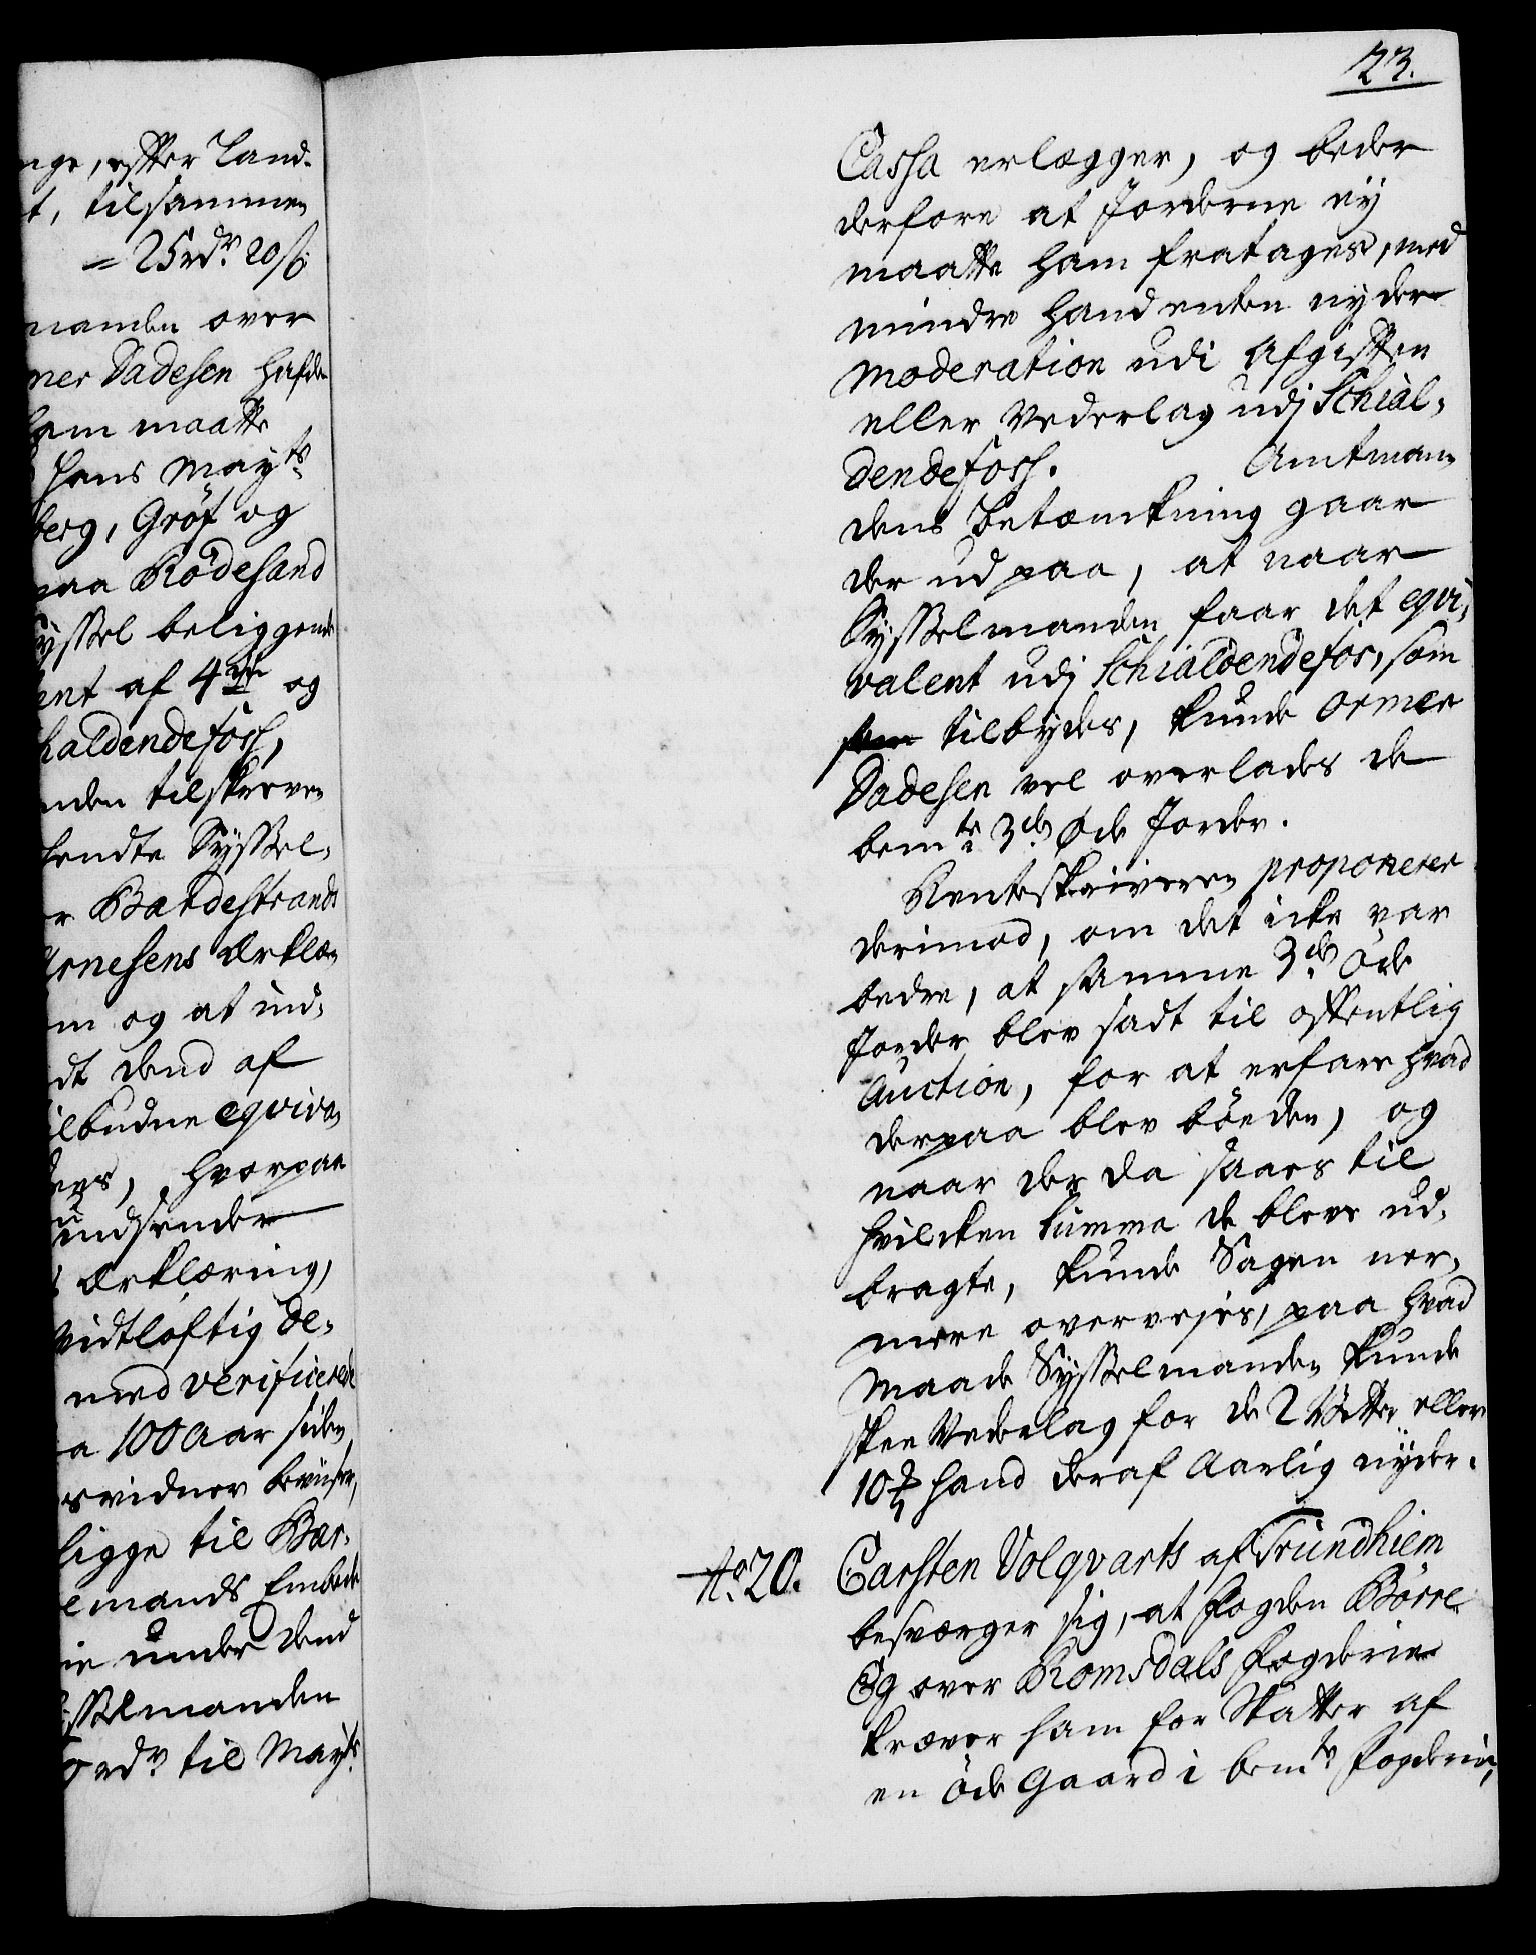 nge, effter Land-
t, tilsammen
= 25 rdr. 20 ß.
manden over
mer Dadesen hafde
ham maatte
Hans Mayts.
berg, Gröf og
paa Rödesand
Syssel beliggende
ent af 4re og
haldendefoss,
nden tilskreven
hendte Syssel-
r Bardestrands
Arnesens Erklæ-
m og at ind-
dt dend af
ilbudne eqviva-
ders, hvorpaa
indsender
Erklæring,
Vidtlöftig De-
med verificerede
a 100 Aar siden
svidner beviiser,
ligge til Bar-
emands Embede
ie under dend
sselmanden
rdr. til Mayts.
23.
Cassa erlægger, og beder
derfore at Jorderne ey
maatte ham fratages, med
mindre hand enten nyder
Moderation udi Afgiften
eller Vederlag udj Schial-
dendefoss. Amtman-
dens Betænkning gaar
der ud paa, at naar
Sysselmanden faar det eqvi-
valent udj Schialdendefos, som
som tilbydes, kunde Ormer
Dadesen vel overlades de
bemte. 3de. Øde Jorder.
Renteskriveren proponerer
derimod, om det icke var
bedre, at samme 3de. Öde
Jorder blev sadt til offentlig
Auction, for at erfare hvad
derpaa blev böeden, og
naar der da saaes til
hvilcken Summa de bleve ud-
bragte, kunde Sagen ner-
mere overvejes, paa hvad
Maade Sysselmanden kunde
skee Vederlag for de 2 Vætter eller
10 hand deraf Aarlig nyder.
No. 20. Carsten Volqvarts af Trundhiem
besværger sig, at Fogden Börre
Eg over Romsdals Fogderie
kræver ham for Skatter af
en öde Gaard i bemte Fogderie,